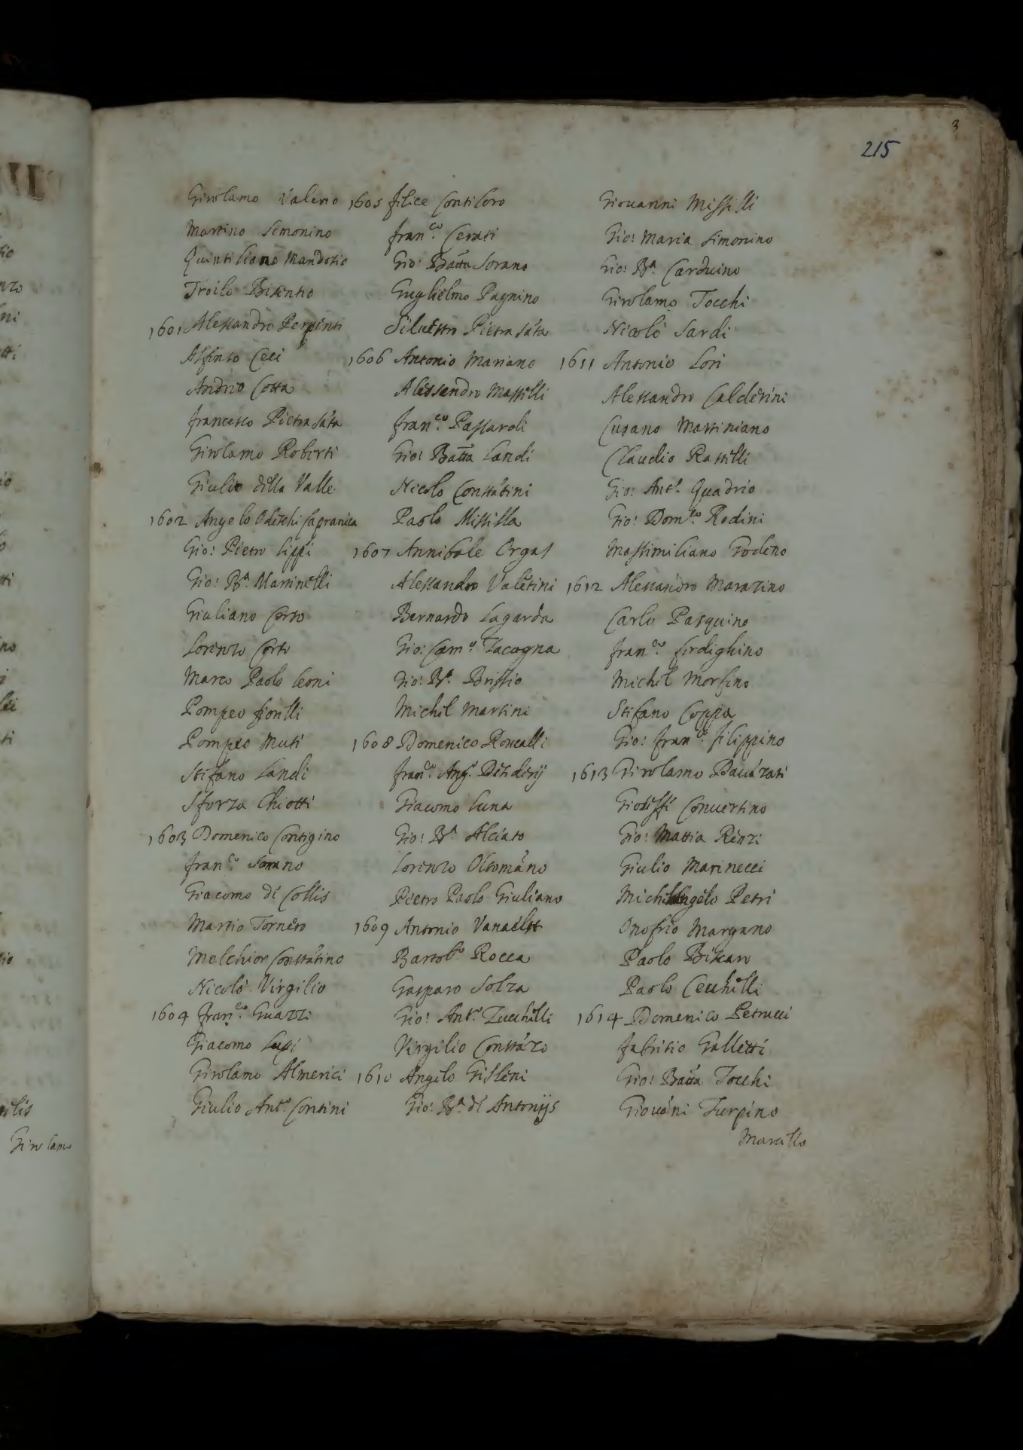 3
215
Girolamo Valerio
Martino Simonino
Quintiliano Mandosio
Troilo Bisentio
1601 Alessandro Perpinti
Asfinto Ceci
Andrea Cotta
francesco Pietrasáta
Girolamo Roberti
Giulio della Valle
1602 Angelo Odeschi
Gio: Pietro Lippi
Gio: Bª. Marinelli
Giuliano Corso
Lorenzo Corti
Marco Paolo Leoni
Pompeo fionlli
Pompeo Muti
Stefano Landi
Sforza Chiotti
1603 Domenico Contigino
fran.co Sorano
Giacomo de Collis
Martio Torneso
Melchior Constátino
Nicolò Virgilio
1604 fran.co Guazzi
Giacomo Lupi
Girolamo Almerici
Giulio Ant.o Contini
1605 felice Contiloro
fran.co Cerati
Gio: Batta Sorano
Guglielmo Pagnino
Siluestro Pietrasáta
1606 Antonio Mariano
Alessandro Masselli
fran.co Passaroli
Gio: Batta Landi
Nicolo Constátini
Paolo Missilla
1607 Annibale Orgas
Alessandro Valétini
Bernardo Lagarda
Gio: Cam.o Zacagna
Gio: Bª. Bussio
Michel Martini
1608 Domenico Roncalli
fran.o Ang.o Desiderij
Giacomo Luna
Gio: Bª. Alciato
Lorenzo Oltománo
Pietro Paolo Giuliano
1609 Antonio
Bartol.o Rocca
Gasparo Solza
Gio: Ant.o Zecchelli
Virgilio Constázo
1610 Angelo Gisleni
Gio: Bª. de Antonijs
Giouanni Misselli
Gio: Maria Simonino
Gio: Bª. Carduino
Girolamo Tocchi
Nicolò Sardi
1611 Antonio Lori
Alessandro Calderini
Curano Martiniano
Claudio Rasselli
Gio: Ant.o Quadrio
Gio: Dom.co Rodini
Massimiliano Godeno
1612 Alessandro Marazino
Carlo Pasquino
fran.co fordighino
Michel Morsino
Stefano Coppa
Gio: fran.co filippino
1613 Girolamo Bauázati
Gioseffe Conuertino
Gio: Mattia Rénzi
Giulio Marinucci
Michelangelo Petri
Onofrio Margano
Paolo
Paolo Cecchelli
1614 Domenico Petrucci
fabritio Galletti
Gio: Batta Tocchi
Giouáni Turpino
Marcello
Girolamo